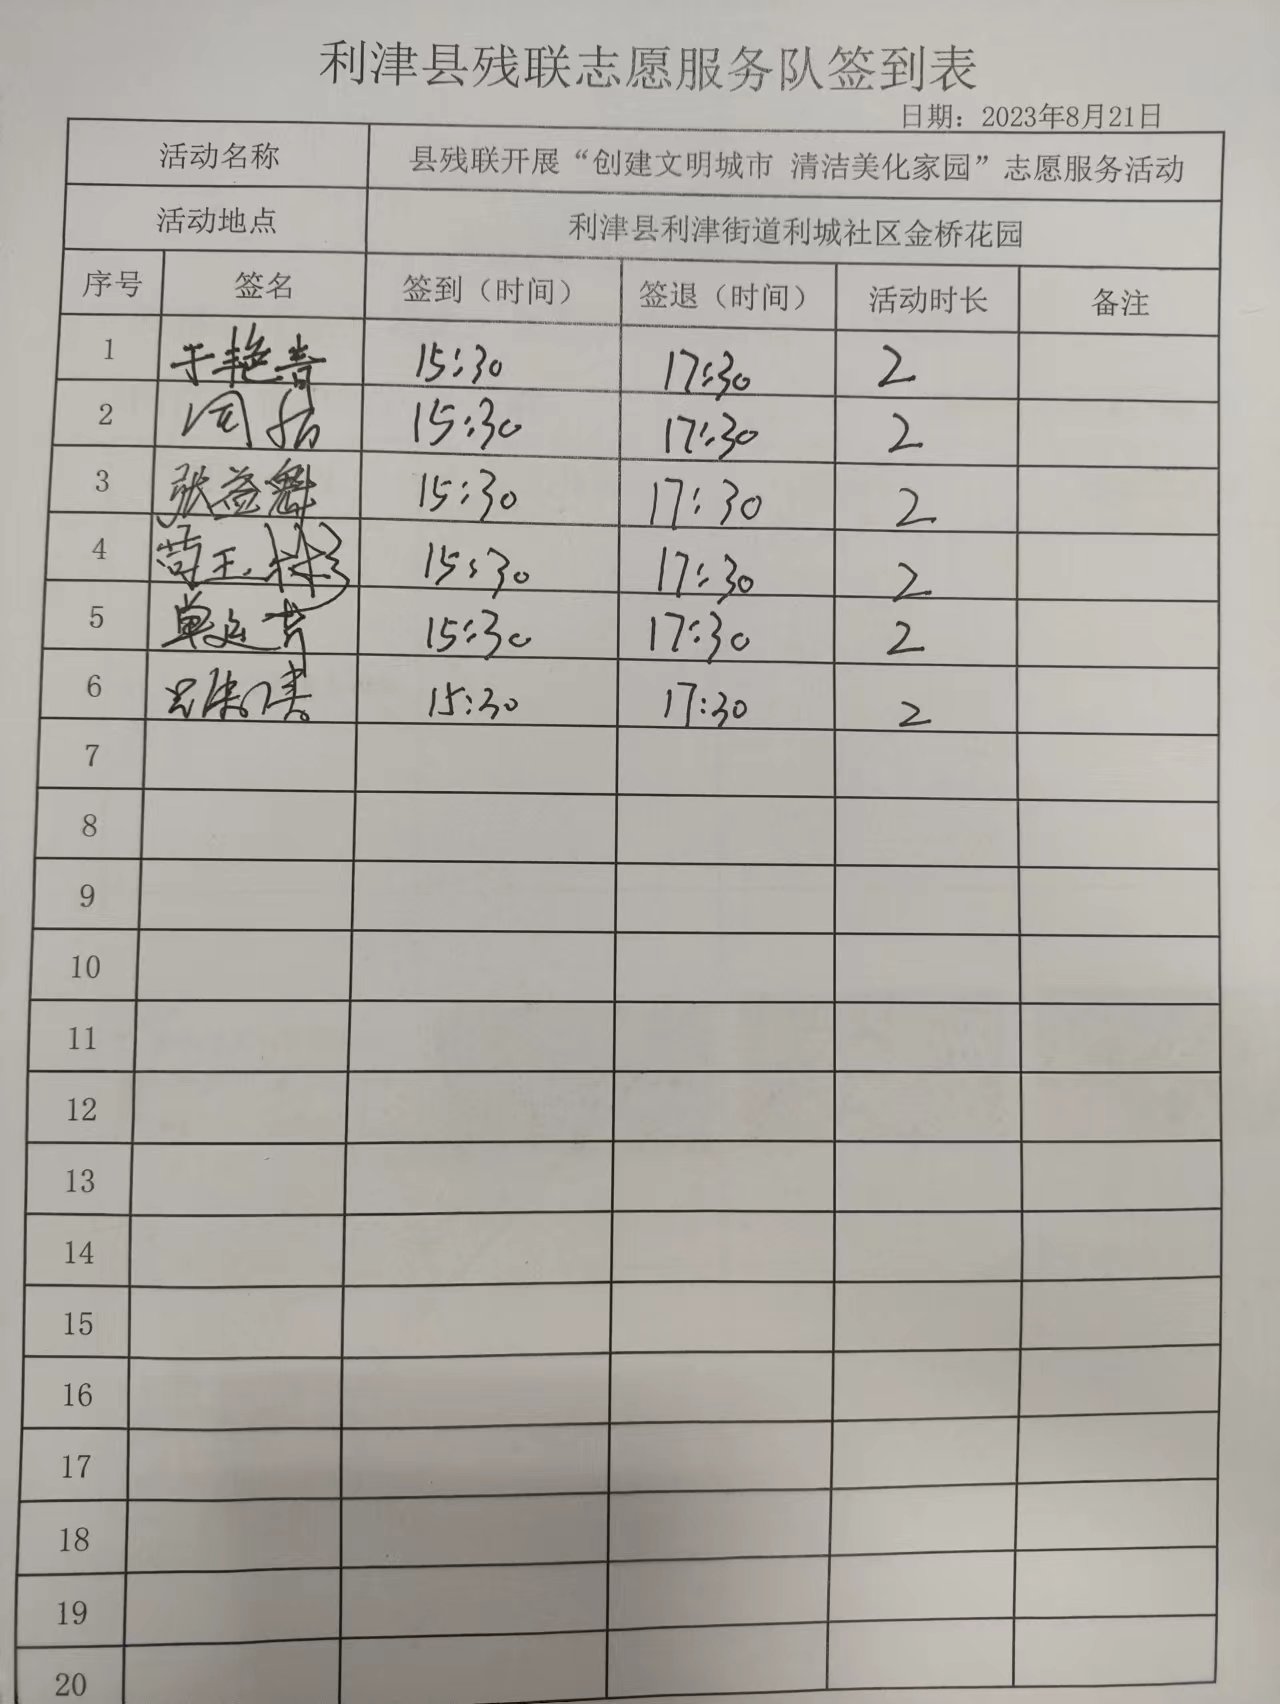 利津县残联志愿服务队签到表
日期：2023年8月21日
活动名称 县残联开展“创建文明城市 清洁美化家园”志愿服务活动
活动地点 利津县利津街道利城社区金桥花园
序号 签名 签到（时间） 签退（时间） 活动时长 备注
1 于艳春 15:30 17:30 2
2 15:30 17:30 2
3 张益魁 15:30 17:30 2
4 15:30 17:30 2
5 15:30 17:30 2
6 15:30 17:30 2
7
8
9
10
11
12
13
14
15
16
17
18
19
20